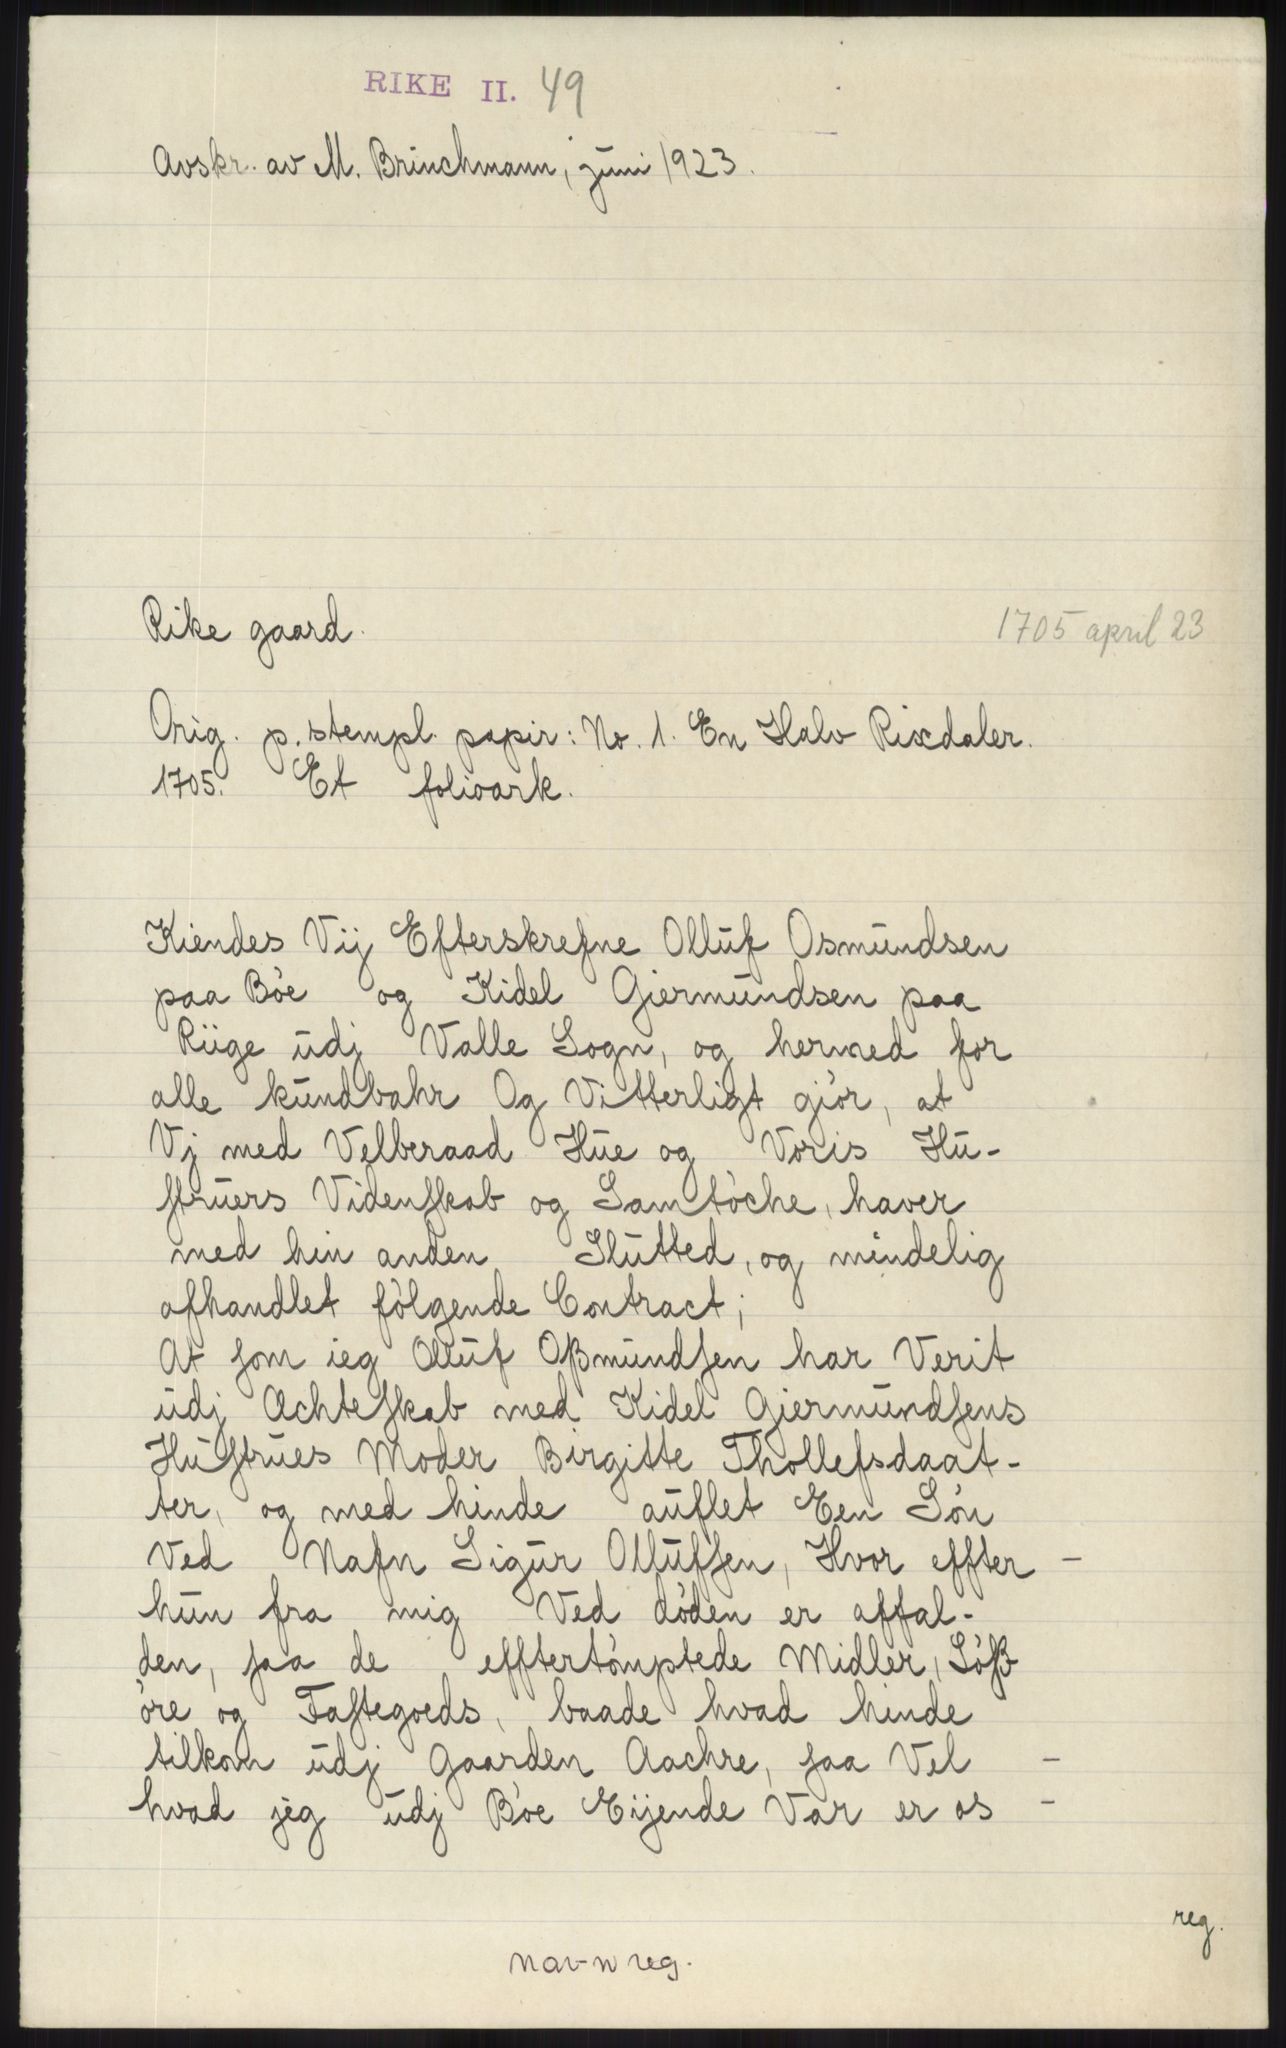 RIKE II. 49
Avskr. av M. Brinchmann, juni 1923.
Rike gaard.
1705 april 23
Orig. p. stempl. papir: No. 1. En Halv Rixdaler.
1705. Et folioark.
Kiendes Vij Efterskrefne Olluf Osmundsen
paa Bòe og Kidel Giermundsen paa
Riige udj Valle Sogn, og hermed for
alle kundbahr Og Vitterligt giòr, at
Vj med Velberaad Hue og Voris Hu-
ſtruers Videnſkab og Samtòche, haver
med hin anden Slutted, og mindelig
afhandlet fòlgende Contract;
At ſom ieg Olluf Oßmundſen har Verit
udj Achteſkab med Kidel Giermundſens
Huſtrues Moder Birgitte Thollefsdaat-
ter, og med hinde auflet Een Sòn
Ved Nafn Sigur Ollufſen, Hvor effter -
hun fra mig Ved dòden er affal-
den, ſaa de effterlòmptede Midler, Lòß
òre og Faſtegoeds, baade hvad hinde
tilkom udj Gaarden Aachre, ſaa Vel -
hvad jeg udj Bòe Eijende Var er os -
reg.
navn reg.